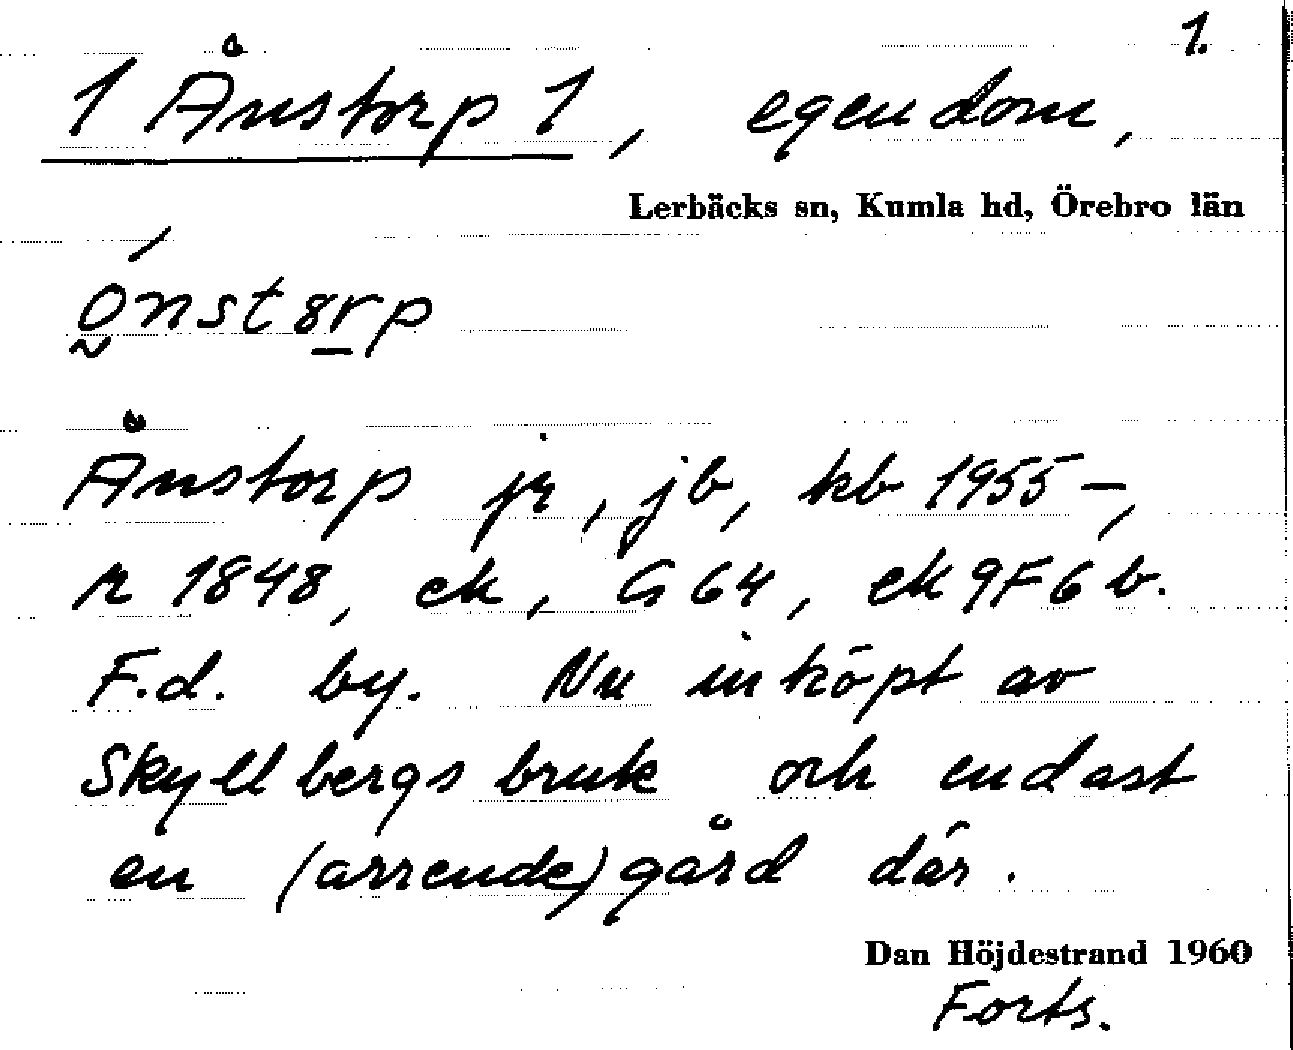 1.
1 Ånstorp 1, egendom,
Lerbäcks sn, Kumla hd, Örebro län
ónstȣrp
Ånstorp jr, jb, kb 1955–,
r 1848, ek, G 64, ek 9F6b.
F.d. by. Nu inköpt av
Skyllbergs bruk och endast
en (arrende)gård där.
Dan Höjdestrand 1960
Forts.